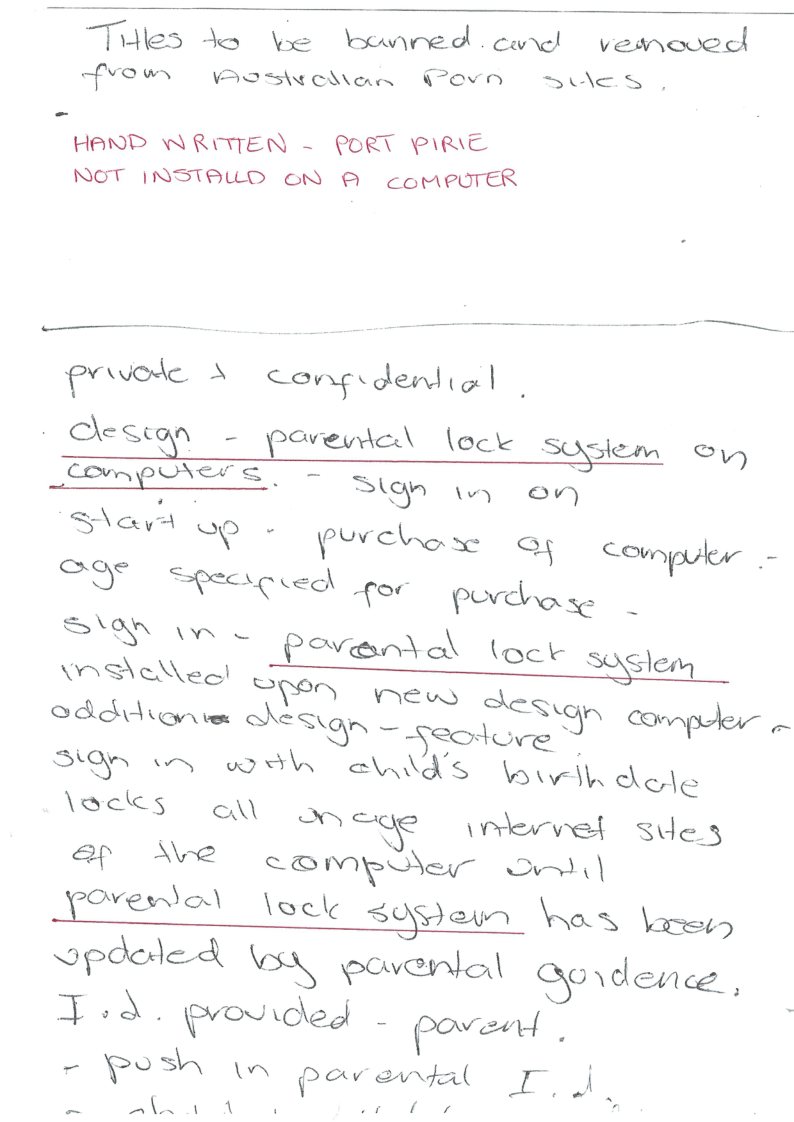 Titles to be banned. and removed
from Australian Porn sites.
HAND WRITTEN - PORT PIRIE
NOT INSTALLD ON A COMPUTER
private & confidential.
design - parental lock system on
computers. - sign in on
start up - purchase of computer -
age specified for purchase -
sign in - parental lock system
installed upon new design computer -
addition - design - feature
sign in with child's birthdate
locks all internet sites
of the computer until
parental lock system has been
updated by parental guidence.
I.d. provided - parent.
- push in parental I.d.